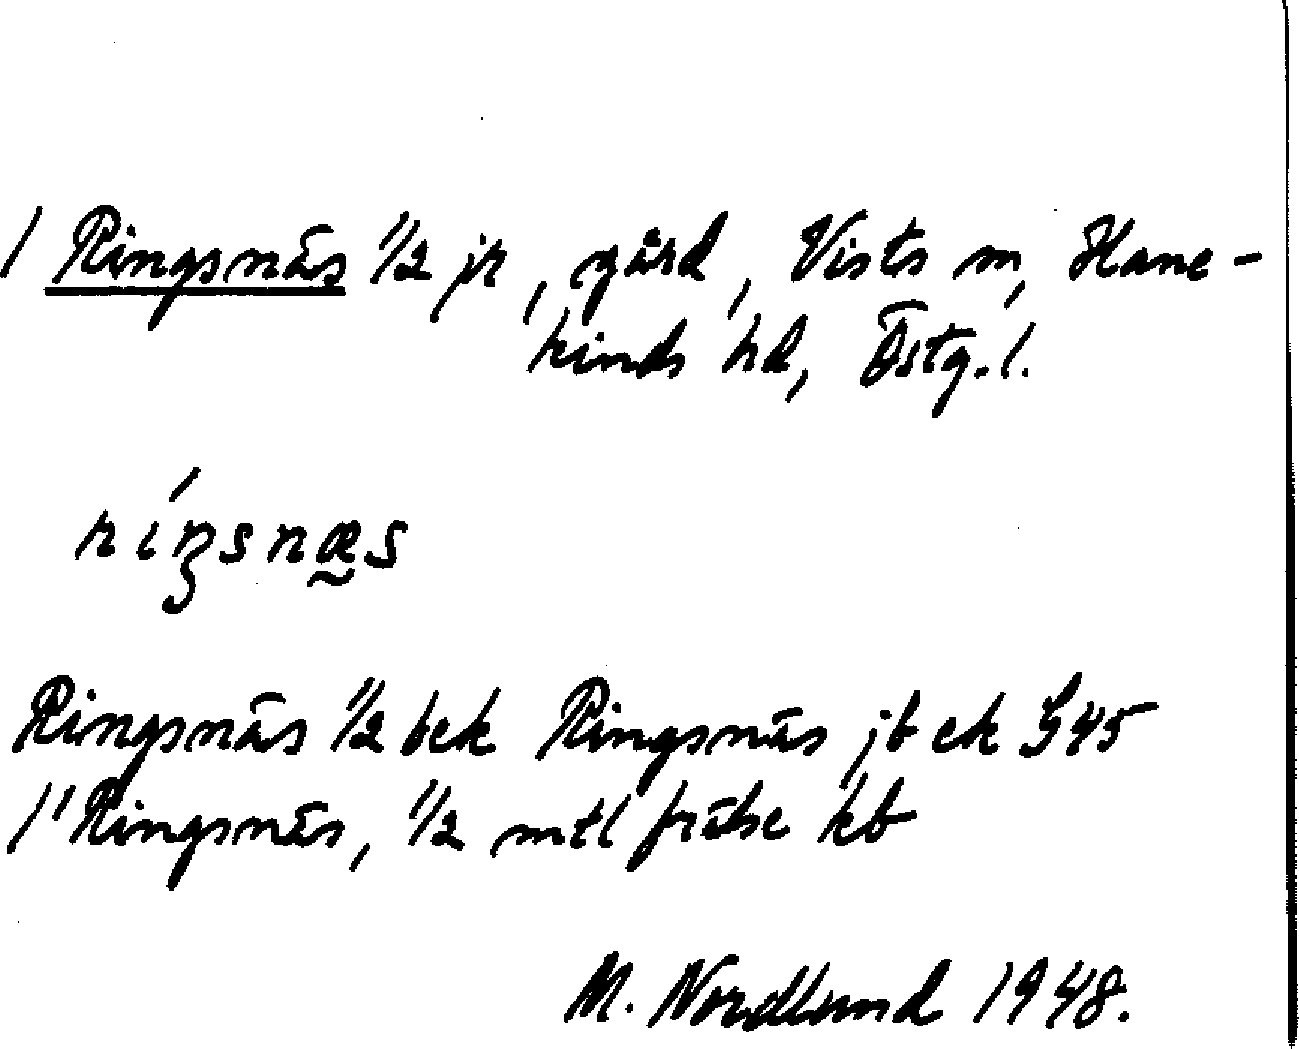 / Ringsnäs 1/2 jr, gård, Vists sn, Hane-
kinds hd, Östg. l.
ríŋsnæ̰s
Ringsnäs 1/2 bek Ringsnäs jb ek G 45
/' Ringsnäs, 1/2 mtl frälse kb
M. Nordlund 1948.